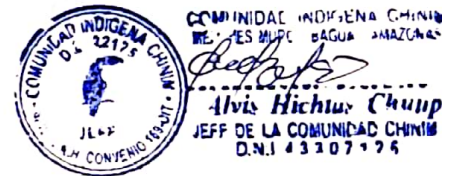 COMUNIDAD INDIGENA CHINIM
D.L 22175
JEFE
CONVENIO 169-OIT
COMUNIDAD INDIGENA CHININ
BAGUA AMAZONAS
Alvis Chuup
JEFF DE LA COMUNIDAD CHINIM
D.N.I 43307175